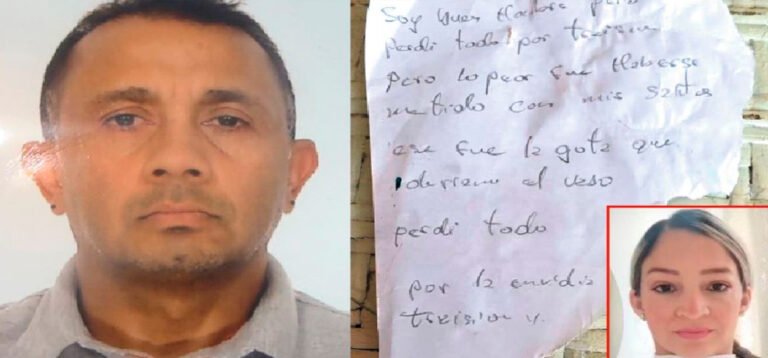 Soy
Perdi todo por traision
pero lo peor fue Haberse
metido con mis santos
ese fue la gota que
derramo el vaso
perdi todo
por la envidia
traision y.